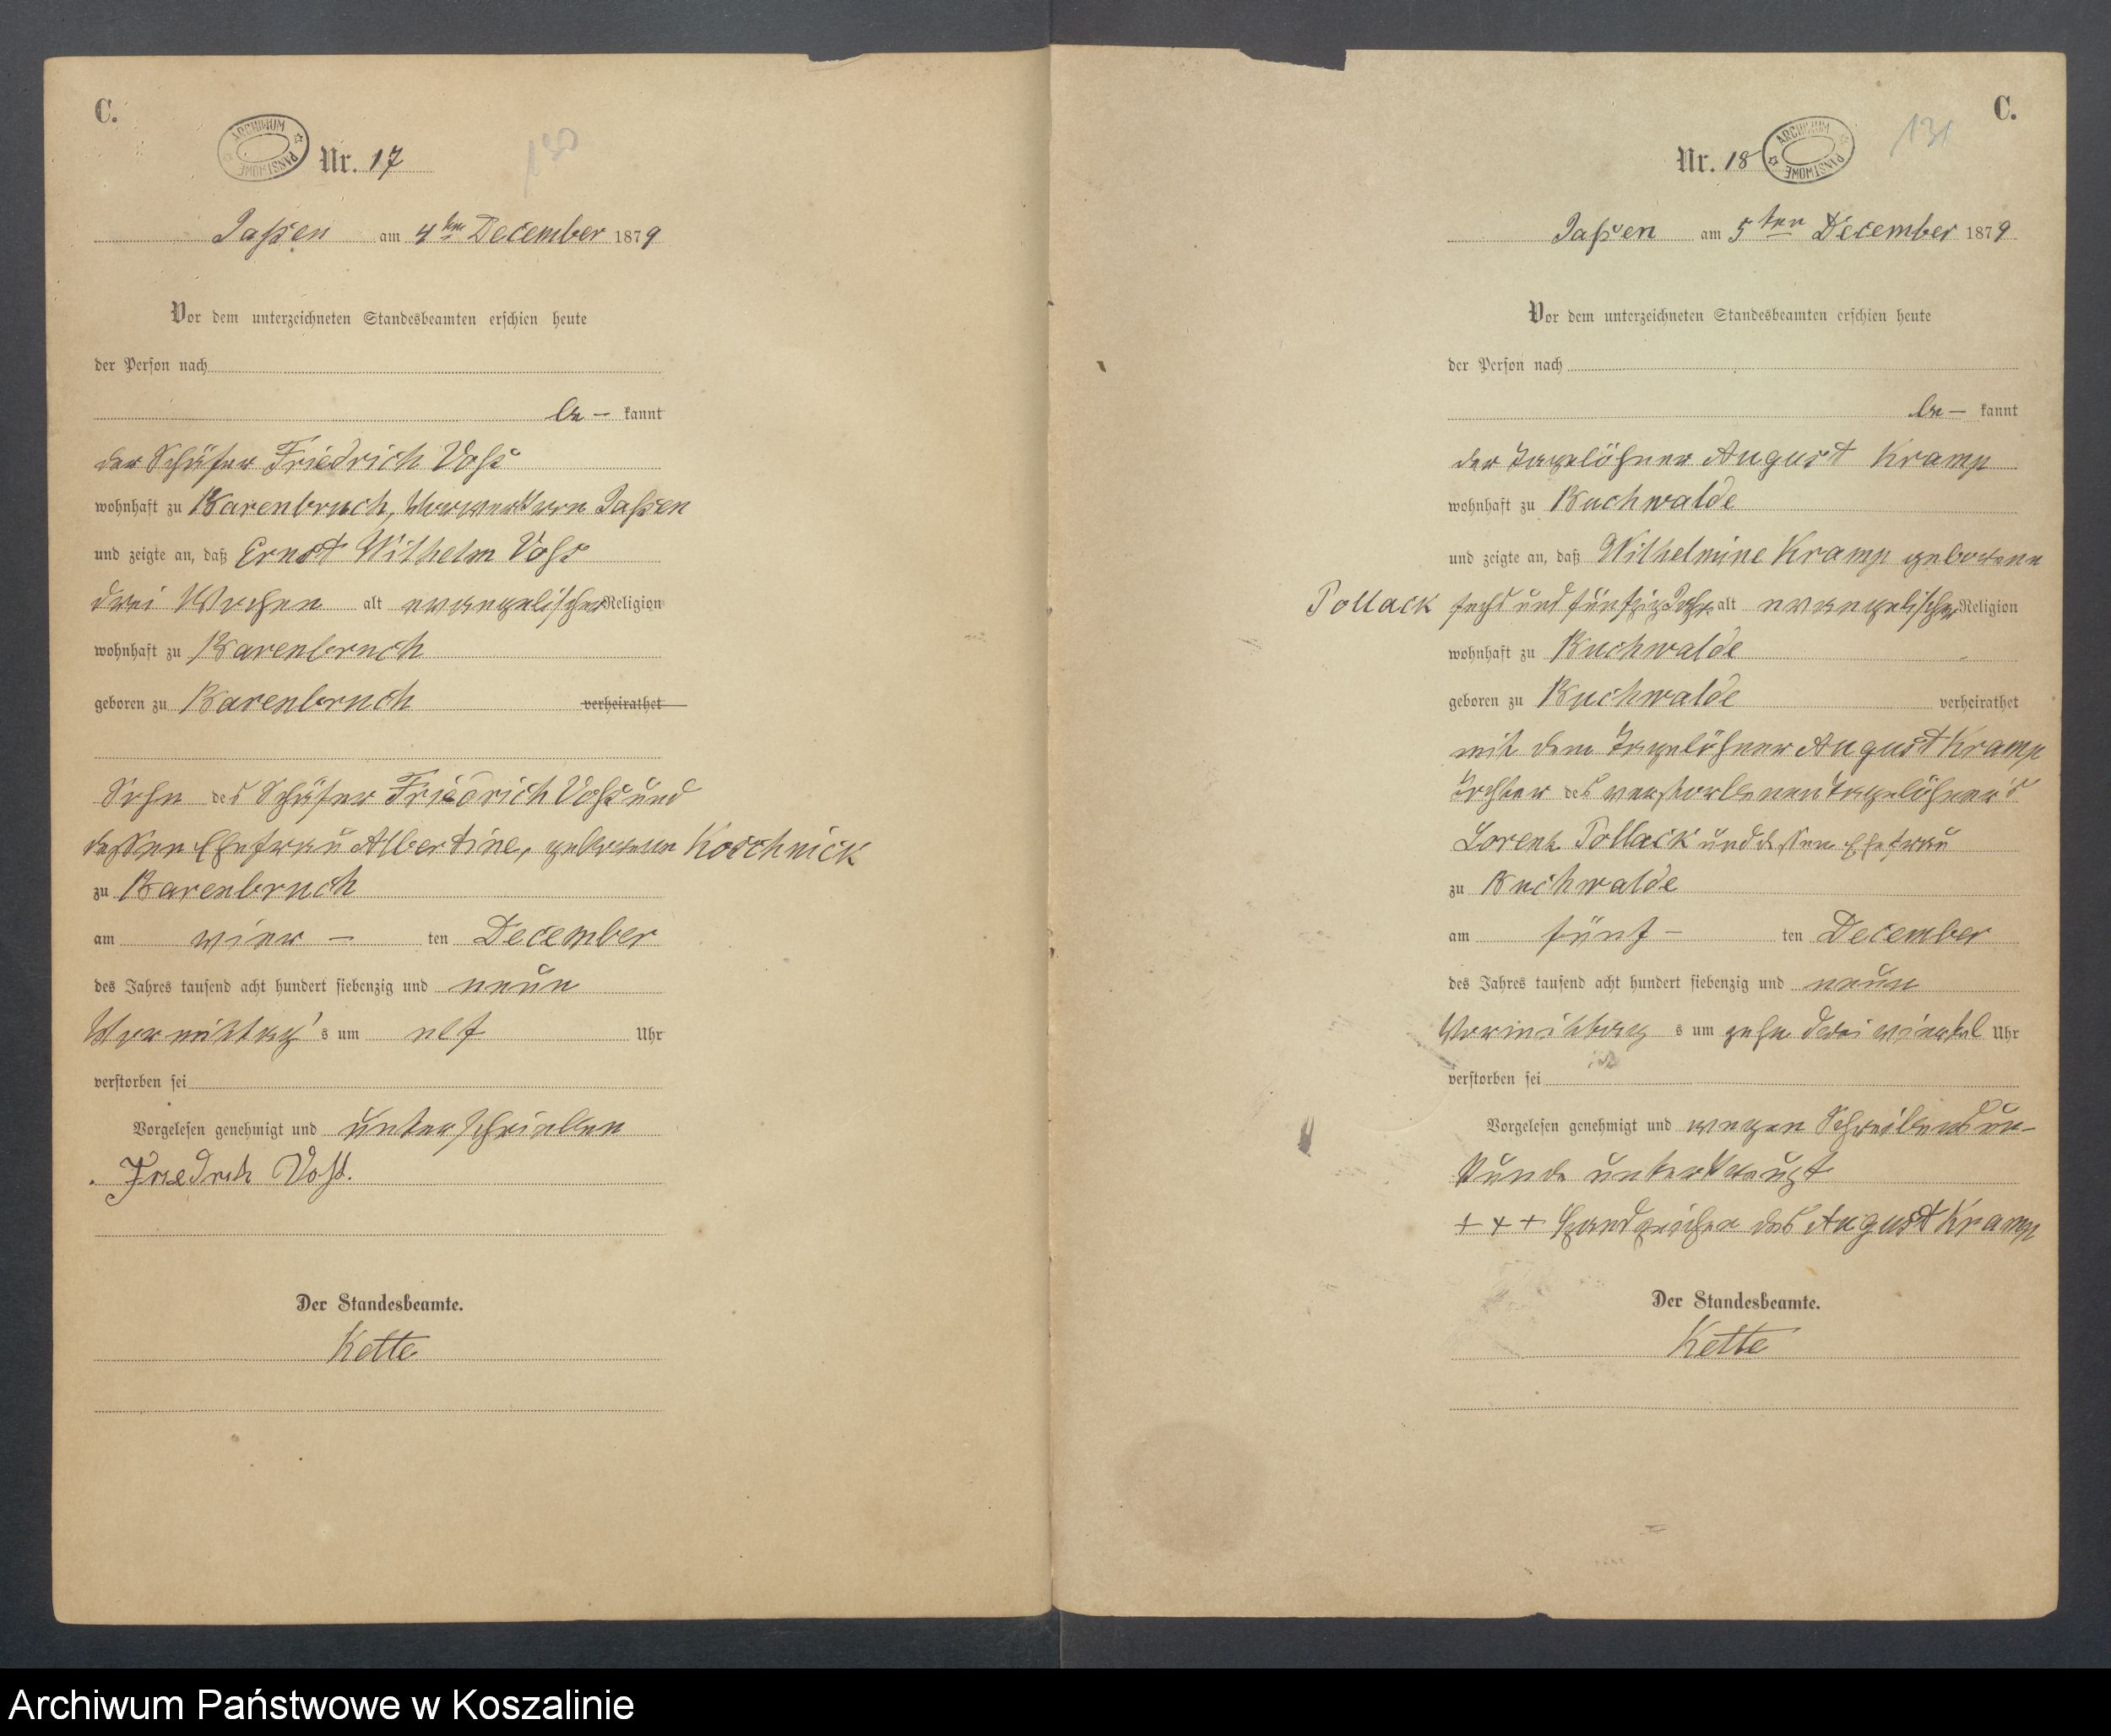 C.
ARCHIWUM PAŃSTWOWE
Nr. 17
130
Jassen am 4ten December 1879
Vor dem unterzeichneten Standesbeamten erschien heute
der Person nach
be- kannt
der Schäfer Friedrich Voß
wohnhaft zu Barenbruch, Vorwerk von Jassen
und zeigte an, daß Ernst Wilhelm Voß
drei Wochen alt evangelischer Religion
wohnhaft zu Barenbruch
geboren zu Barenbruch verheirathet
Sohn des Schäfer Friedrich Voß und
dessen Ehefrau Albertine, geborene Koschnick
zu Barenbruch
am vier - ten December
des Jahres tausend acht hundert siebenzig und neun
Vormittag's um elf Uhr
verstorben sei
Vorgelesen genehmigt und unterschrieben
Friedrich Voß.
Der Standesbeamte.
Kette
C.
ARCHIWUM PAŃSTWOWE
Nr. 18
131
Jassen am 5ten December 1879
Vor dem unterzeichneten Standesbeamten erschien heute
der Person nach
be- kannt
der Tagelöhner August Kramp
wohnhaft zu Buchwalde
und zeigte an, daß Wilhelmine Kramp geborene
Pollack sechs und fünfzig Jahr alt evangelischer Religion
wohnhaft zu Buchwalde
geboren zu Buchwalde verheirathet
mit dem Tagelöhner August Kramp
Tochter des verstorbenen Tagelöhner's
Lorenz Pollack und dessen Ehefrau
zu Buchwalde
am fünf - ten December
des Jahres tausend acht hundert siebenzig und neun
Vormittag s um zehn drei viertel Uhr
verstorben sei
Vorgelesen genehmigt und wegen Schreibensun-
kunde unterkreuzt
+ + + Handzeichen des August Kramp
Der Standesbeamte.
Kette
Archiwum Państwowe w Koszalinie